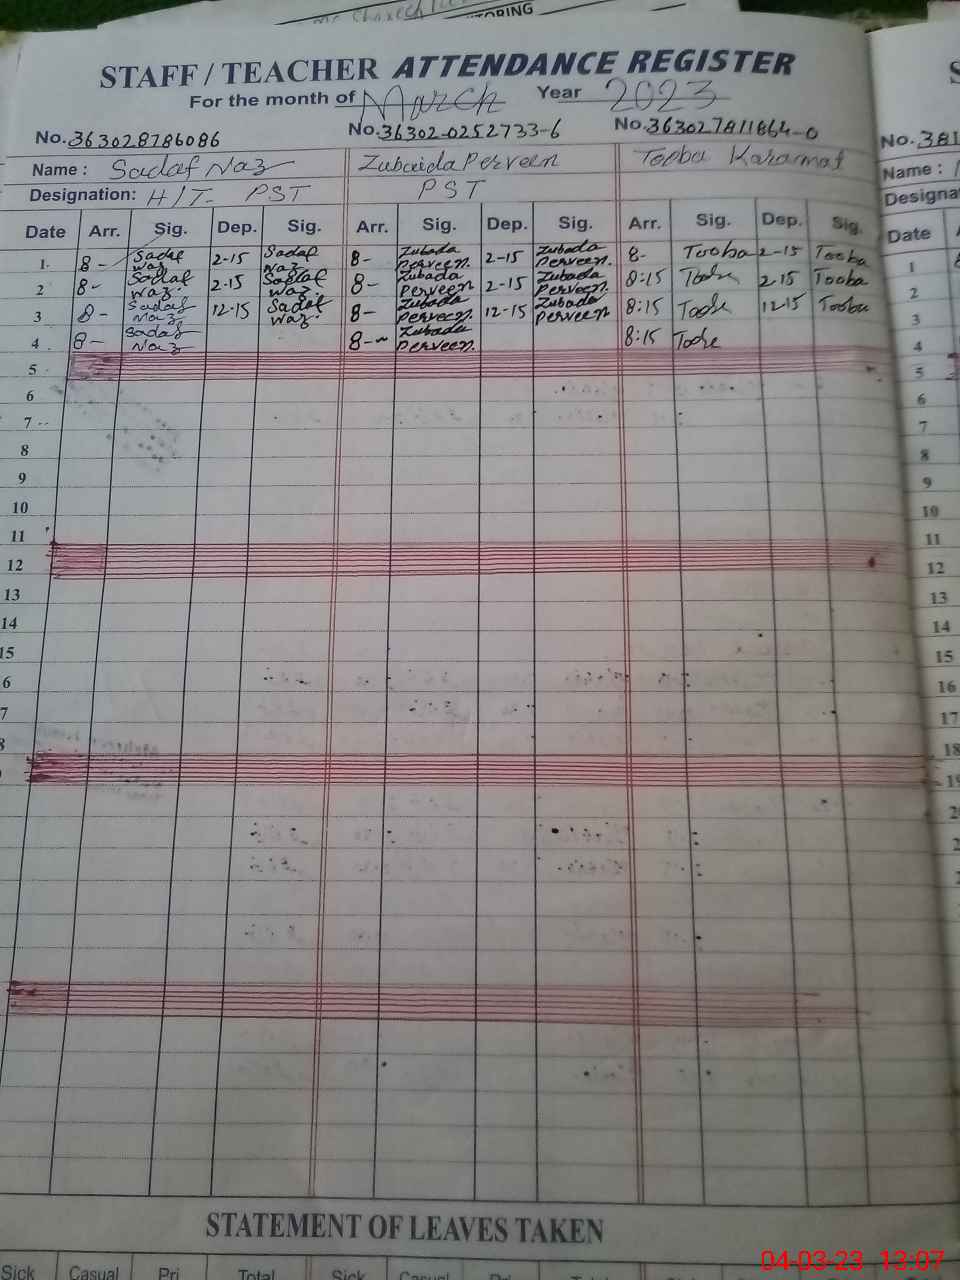 TORING
STAFF / TEACHER ATTENDANCE REGISTER
For the month of March Year 2023
No. 363028786086 No. 36302-0252733-6 No. 363027811864-0 No. 381
Name : Sadaf Naz Zubaida Perveen Tooba Karamat Name :
Designation: H/T- PST PST Designa
Date Arr. Sig. Dep. Sig. Arr. Sig. Dep. Sig. Arr. Sig. Dep. Sig. Date
1 8- Sadaf Naz 2-15 Sadaf Naz 8- Zubada Perveen 2-15 Zubada Perveen 8- Tooba 2-15 Tooba 1
2 8- Sadaf Naz 2-15 Sadaf Naz 8- Zubada Perveen 2-15 Zubada Perveen 8:15 Tooba 2-15 Tooba 2
3 8- Sadaf Naz 12-15 Sadaf Naz 8- Zubada Perveen 12-15 Zubada Perveen 8:15 Tooba 12-15 Tooba 3
4 8- Sadaf Naz 8- Zubada Perveen 8:15 Tooba 4
5 5
6 6
7 7
8 8
9 9
10 10
11 11
12 12
13 13
14 14
15 15
6 16
7 17
8 18
19
STATEMENT OF LEAVES TAKEN
Sick Casual Pri Total Sick Casual Pri Total Sick
04-03-23 13:07